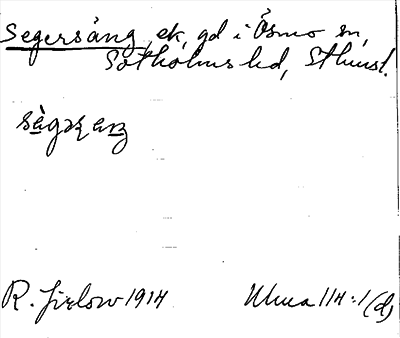 Segersäng, ek, gd i Ösmo sn,
Sotholms hd, Sthmsl.
R. Jirlow 1914 Ulma 114:1 (d)